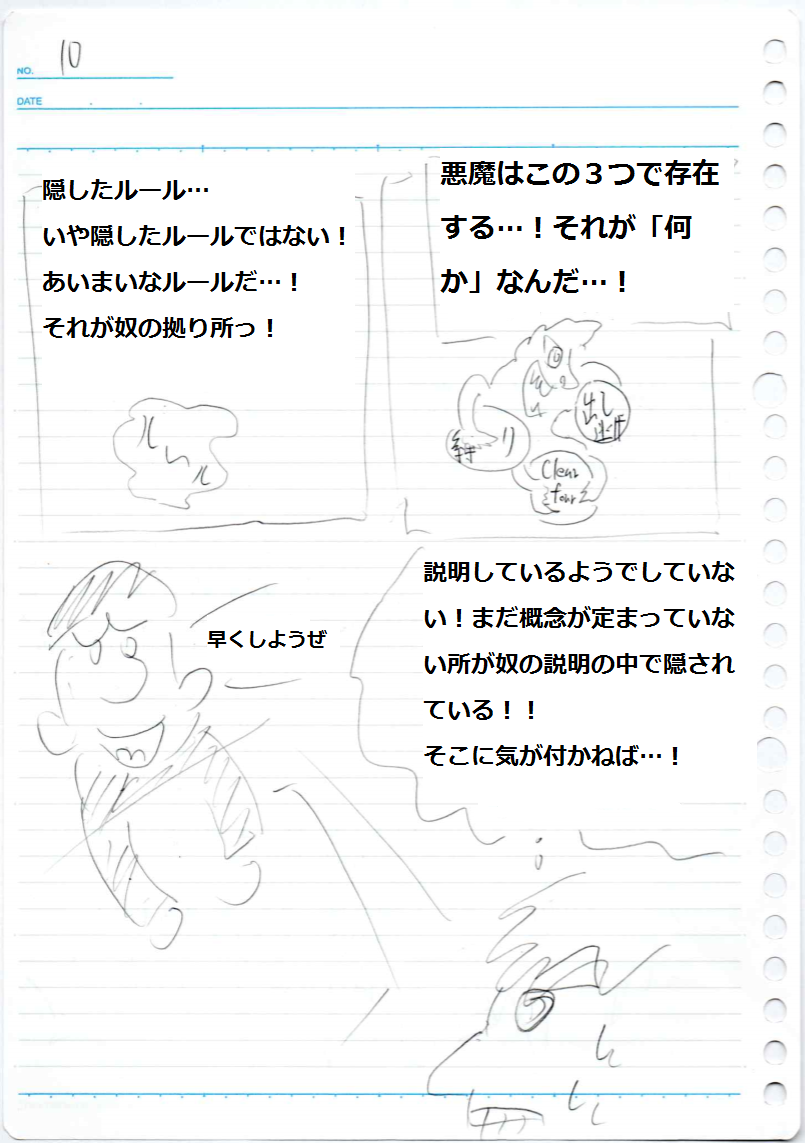 NO. 10
DATE
悪魔はこの３つで存在
する…！それが「何
か」なんだ…！
縛り
出し
逃げ
Clear
four
隠したルール…
いや隠したルールではない！
あいまいなルールだ…！
それが奴の拠り所っ！
ルール
説明しているようでしていな
い！まだ概念が定まっていな
い所が奴の説明の中で隠され
ている！！
そこに気が付かねば…！
早くしようぜ